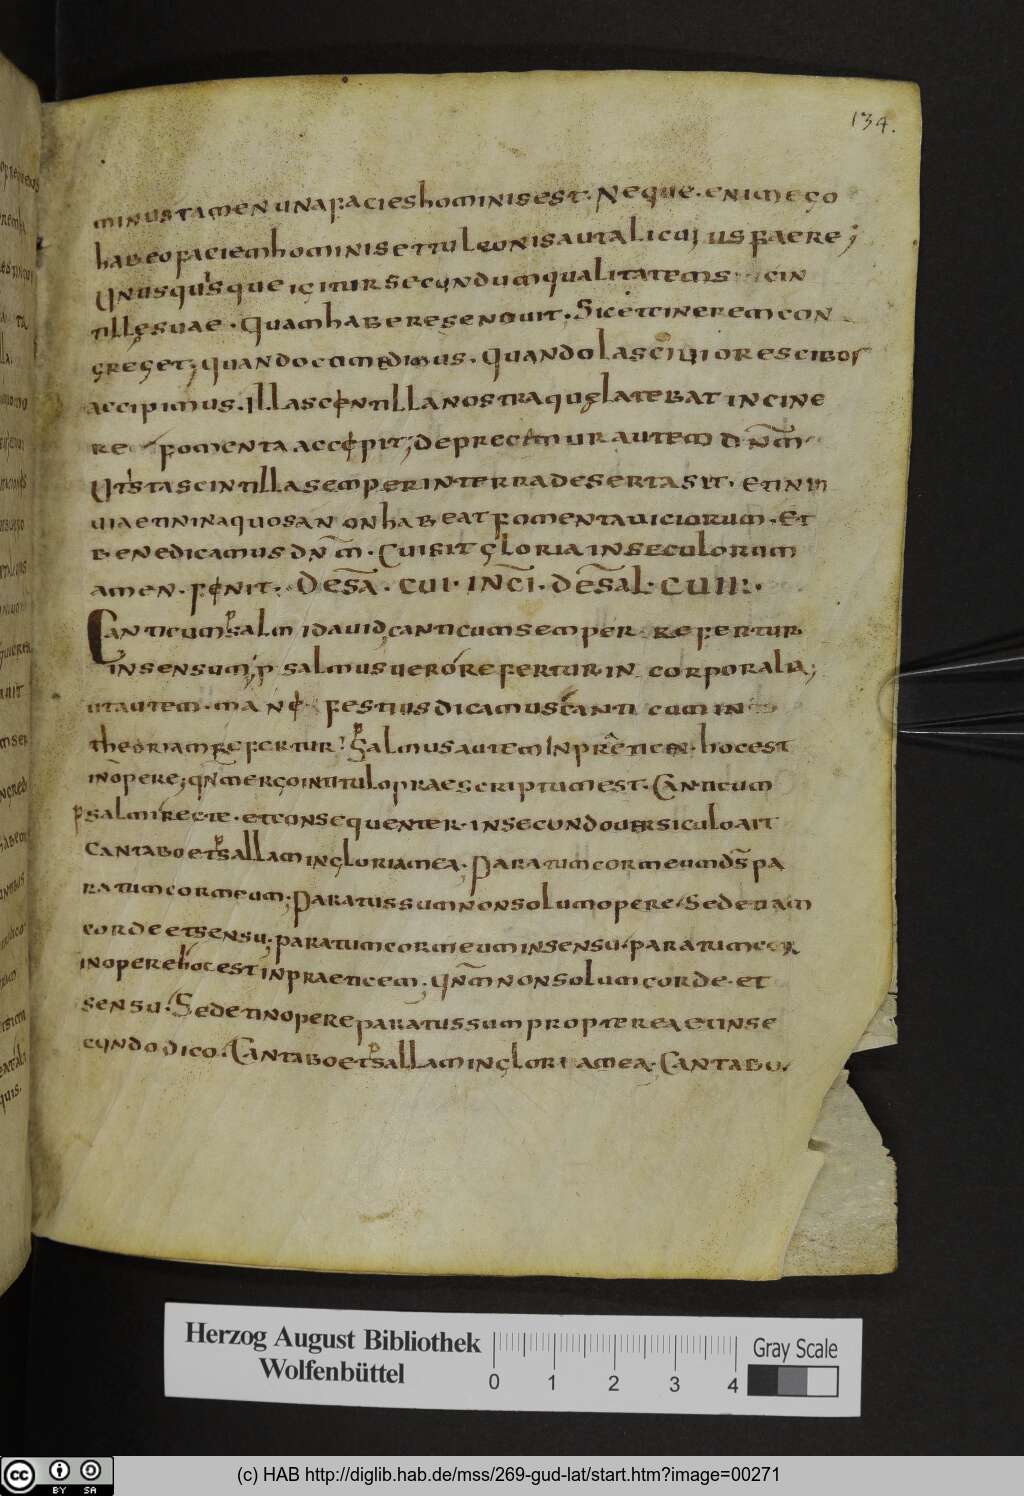 134.
minus tamen una facies hominis est. Neque. enim ego
habeo faciem hominis et tu leonis aut alicujus faere;
Unusqu'sque igitur secundum qualitatem s cin
tillę suae. quam habere se nouit. Sic et cinerem con
greget; quando comedimus. quando lasciuiores cibos
accipimus. Illa scentilla nostra quę latebat in cine
re fomenta accepit; deprecemur autem dn̄m
Ut ista scintilla semper in terra deserta sit. et in in
uia et in inaquosa non habeat fomenta uiciorum. Et
benedicamus dn̄m. Cui sit gloria in seculorum
amen. fenit. De sā. cui. incī. de sāl. cuii.
Canticum psalmi dauid, canticum semper refertur
in sensum; psalmus uero refertur in corporalia;
ut autem manefestius dicamus canticum in
theoriam refertur; psalmus autem in pretticen. hoc est
in opere; qnm ergo in titulo praescriptum est. Canticum
psalmi recte. et consequenter. in secundo uersiculo ait
cantabo et psallam in gloria mea. paratum cor meum ds pa
ratum cor meum; paratus sum non solum opere. Sed etiam
corde et sensu. paratum cor meum in sensu. paratum cor
in opere hoc est in praeticem. qnm non solum corde. et
sensu. Sed et in opere paratus sum propterea et in se
cundo dico. Cantabo et psallam in gloria mea. Cantabo.
Herzog August Bibliothek
Wolfenbüttel
0 1 2 3 4
Gray Scale
cc BY SA
(c) HAB http://diglib.hab.de/mss/269-gud-lat/start.htm?image=00271